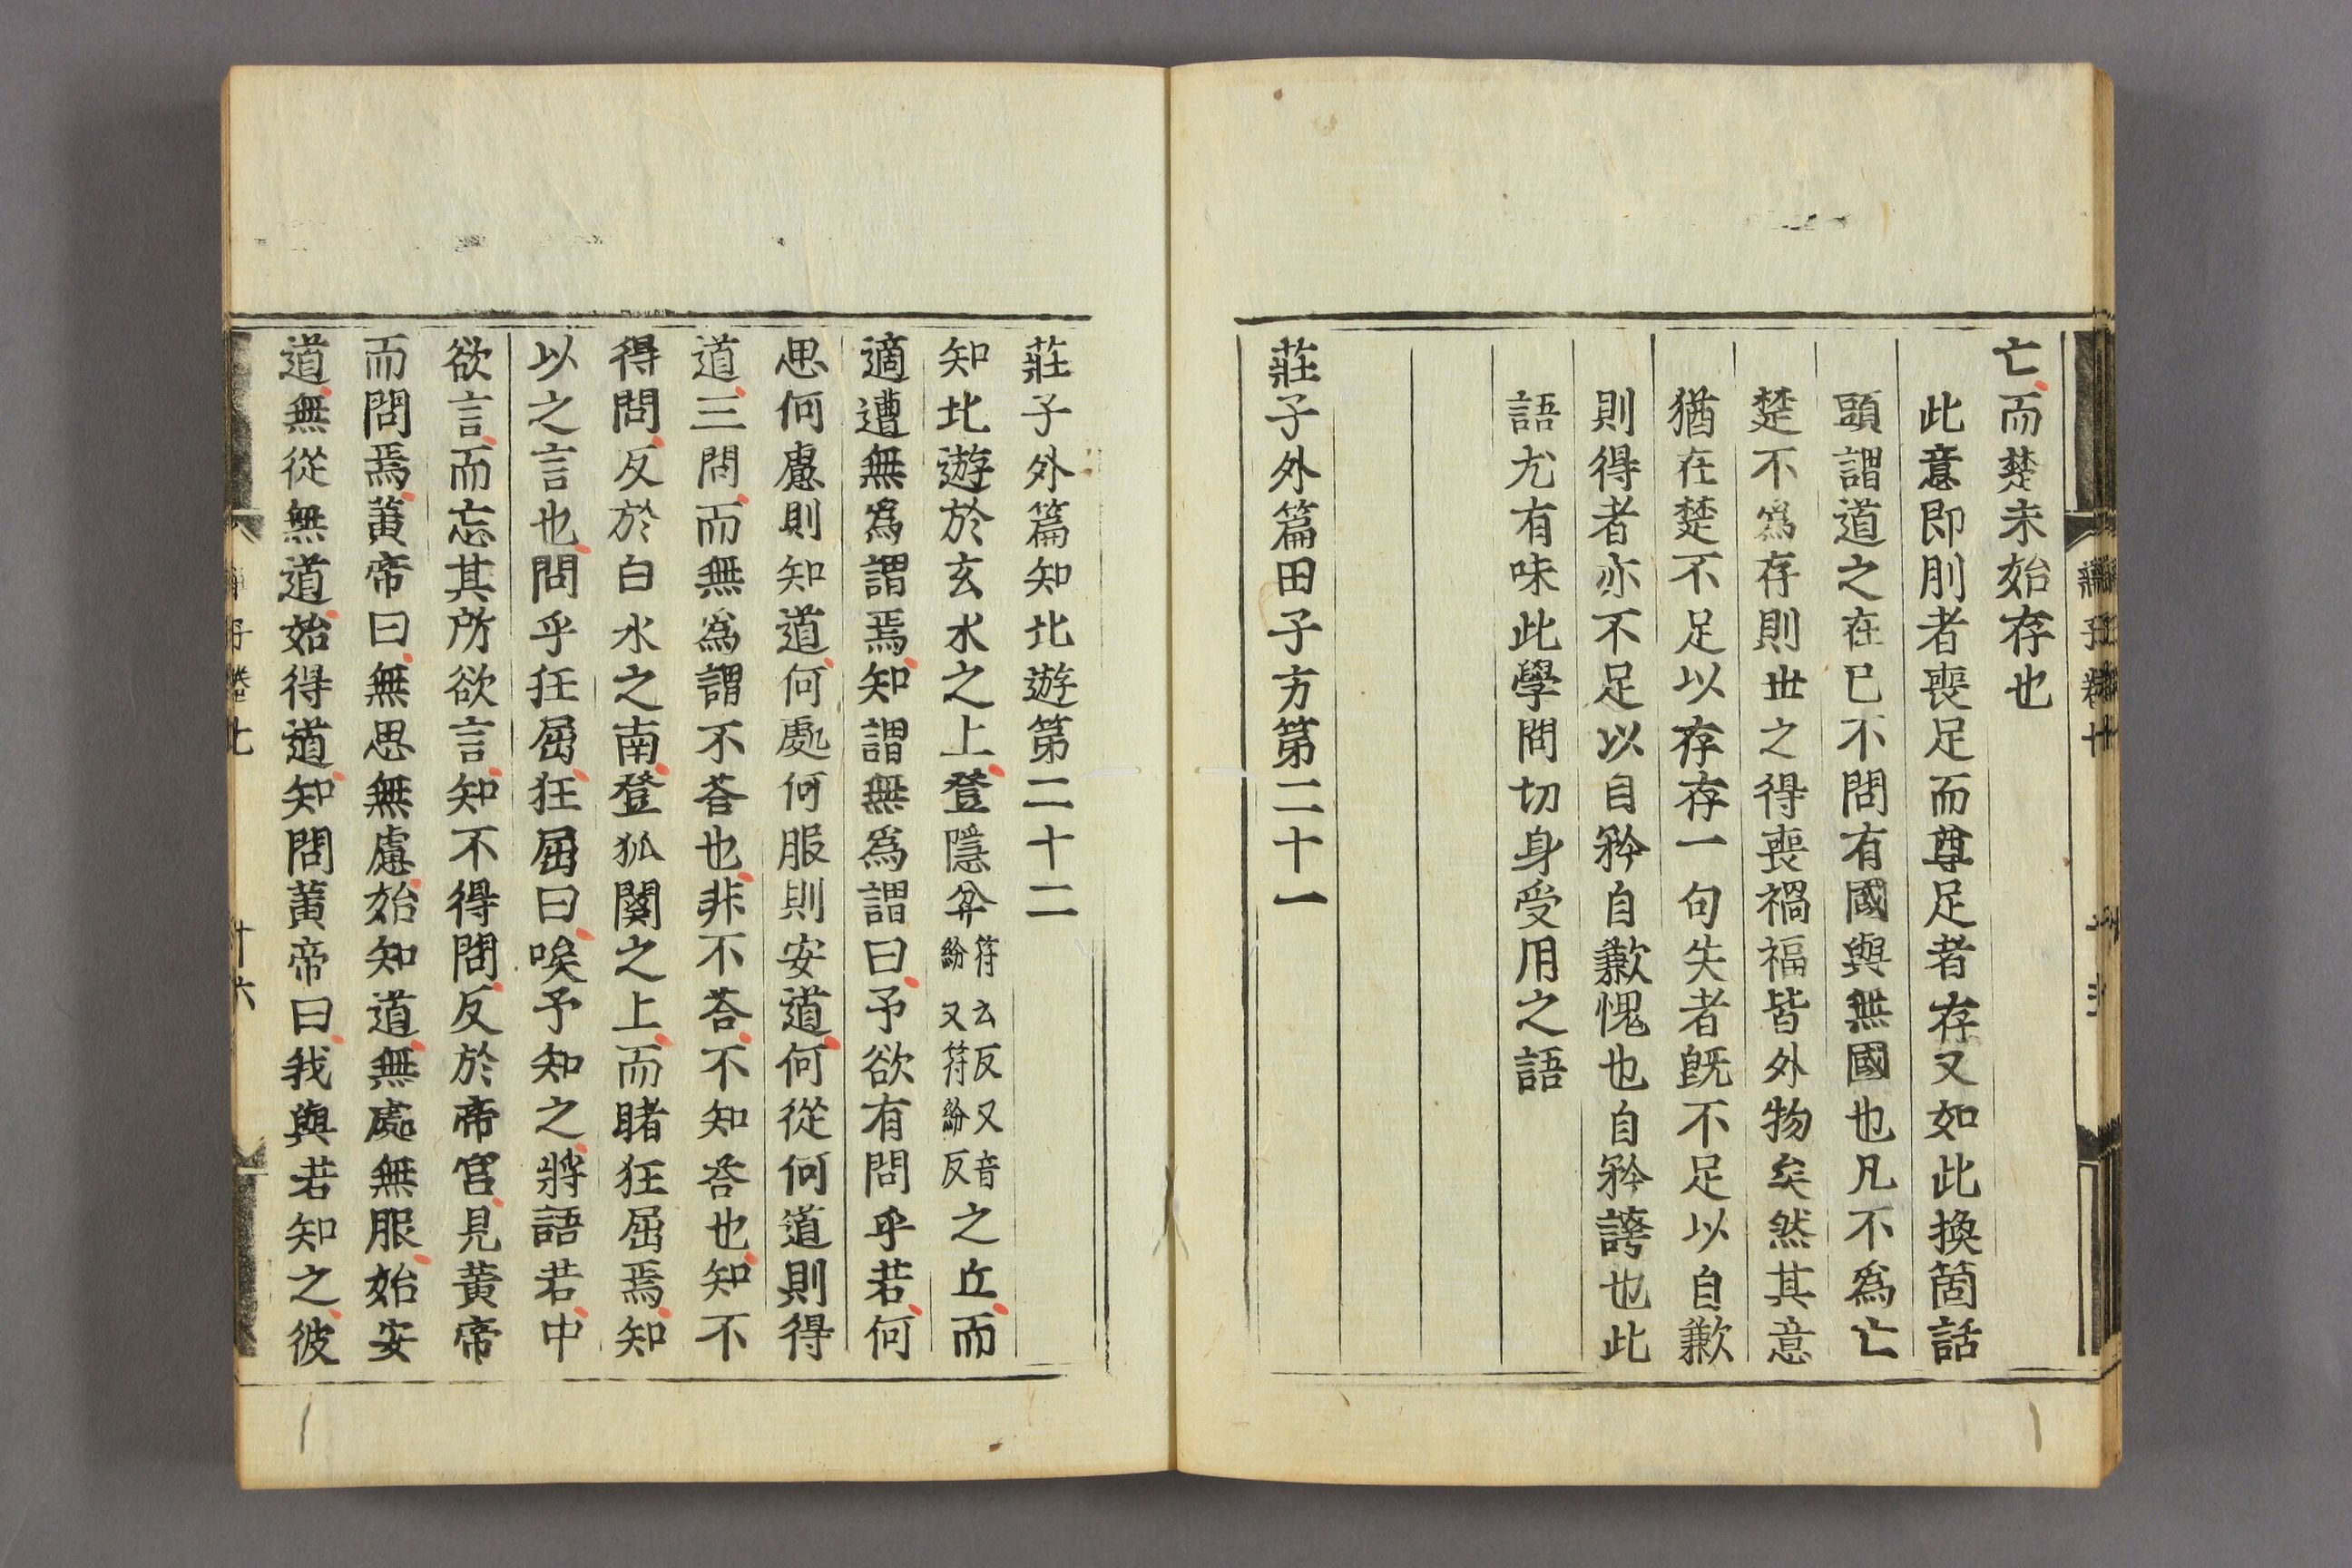 亡而楚未始存也
此意即刖者喪足而尊足者存又如此換箇話
頭謂道之在已不問有國與無國也凡不爲亡
楚不爲存則世之得喪禍福皆外物矣然其意
猶在楚不足以存存一句失者旣不足以自歉
則得者亦不足以自矜自歉愧也自矜誇也此
語尤有味此學問切身受用之語
莊子外篇田子方第二十一
莊子外篇知北遊第二十二
知北遊於玄水之上登隱弅符云反又音紛又符紛反之丘而
適遭無爲謂焉知謂無爲謂曰予欲有問乎若何
思何慮則知道何處何服則安道何從何道則得
道三問而無爲謂不荅也非不荅不知荅也知不
得問反於白水之南登狐闋之上而睹狂屈焉知
以之言也問乎狂屈狂屈曰唉予知之將語若中
欲言而忘其所欲言知不得問反於帝宮見黄帝
而問焉黃帝曰無思無慮始知道無處無服始安
道無從無道始得道知問黃帝曰我與若知之彼
十六